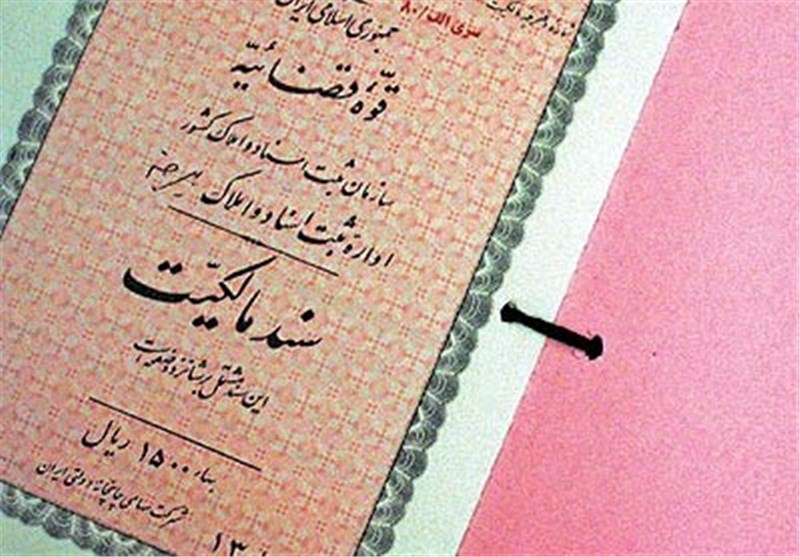 شماره دفترچه مالکیت
سری الف/۸۰
جمهوری اسلامی ایران
قوّهٔ قضائیّه
سازمان ثبت اسناد و املاک کشور
ادارهٔ ثبت اسناد و املاک بیرجند
سند مالکیّت
این سند مشتمل بر شانزده صفحه است
بهاء ۱۵۰۰ ریال
شرکت سهامی چاپخانه دولتی ایران
۱۳